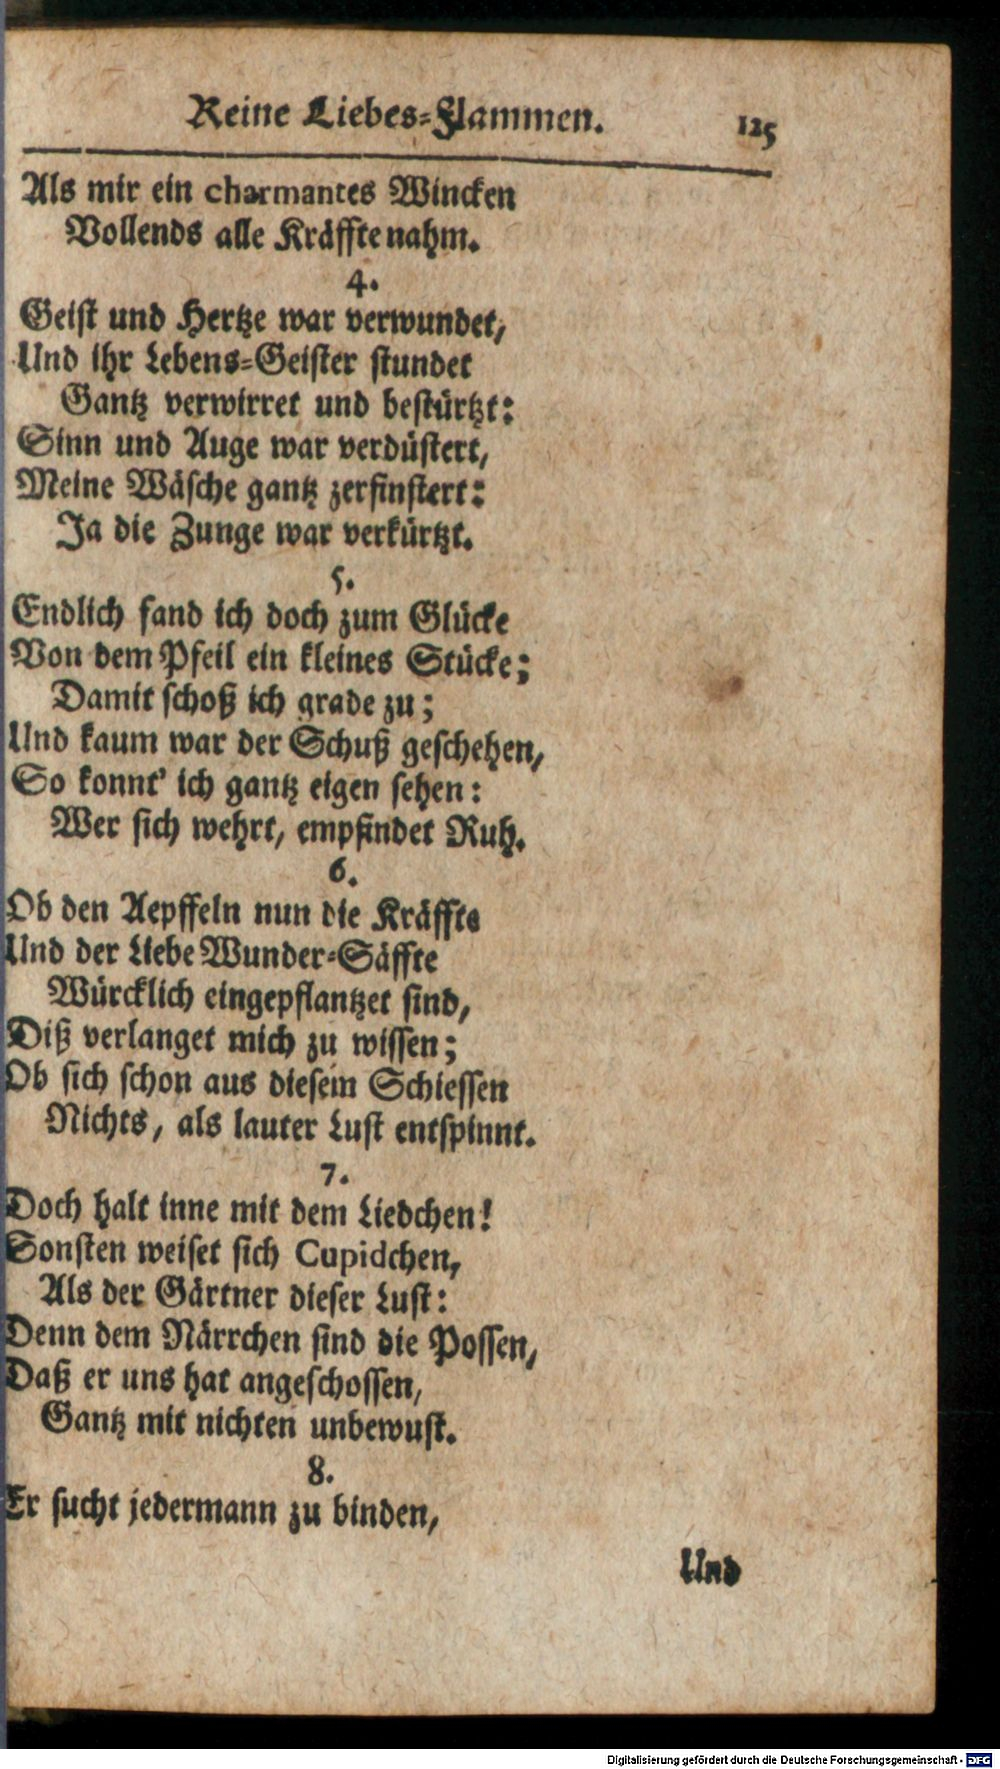 Reine Liebes-Flammen. 125
Als mir ein charmantes Wincken
Vollends alle Kräffte nahm.
4.
Geist und Hertze war verwundet,
Und ihr Lebens-Geister stundet
Gantz verwirret und bestürtzt:
Sinn und Auge war verdüstert,
Meine Wäsche gantz zerfinstert:
Ja die Zunge war verkürtzt.
5.
Endlich fand ich doch zum Glücke
Von dem Pfeil ein kleines Stücke;
Damit schoß ich grade zu;
Und kaum war der Schuß geschehen,
So konnt' ich gantz eigen sehen:
Wer sich wehrt, empfindet Ruh.
6.
Ob den Aepffeln nun die Kräffte
Und der Liebe Wunder-Säffte
Würcklich eingepflantzet sind,
Diß verlanget mich zu wissen;
Ob sich schon aus diesem Schiessen
Nichts, als lauter Lust entspinnt.
7.
Doch halt inne mit dem Liedchen!
Sonsten weiset sich Cupidchen,
Als der Gärtner dieser Lust:
Denn dem Närrchen sind die Possen,
Daß er uns hat angeschossen,
Gantz mit nichten unbewust.
8.
Er sucht jedermann zu binden,
Und
Digitalisierung gefördert durch die Deutsche Forschungsgemeinschaft - DFG